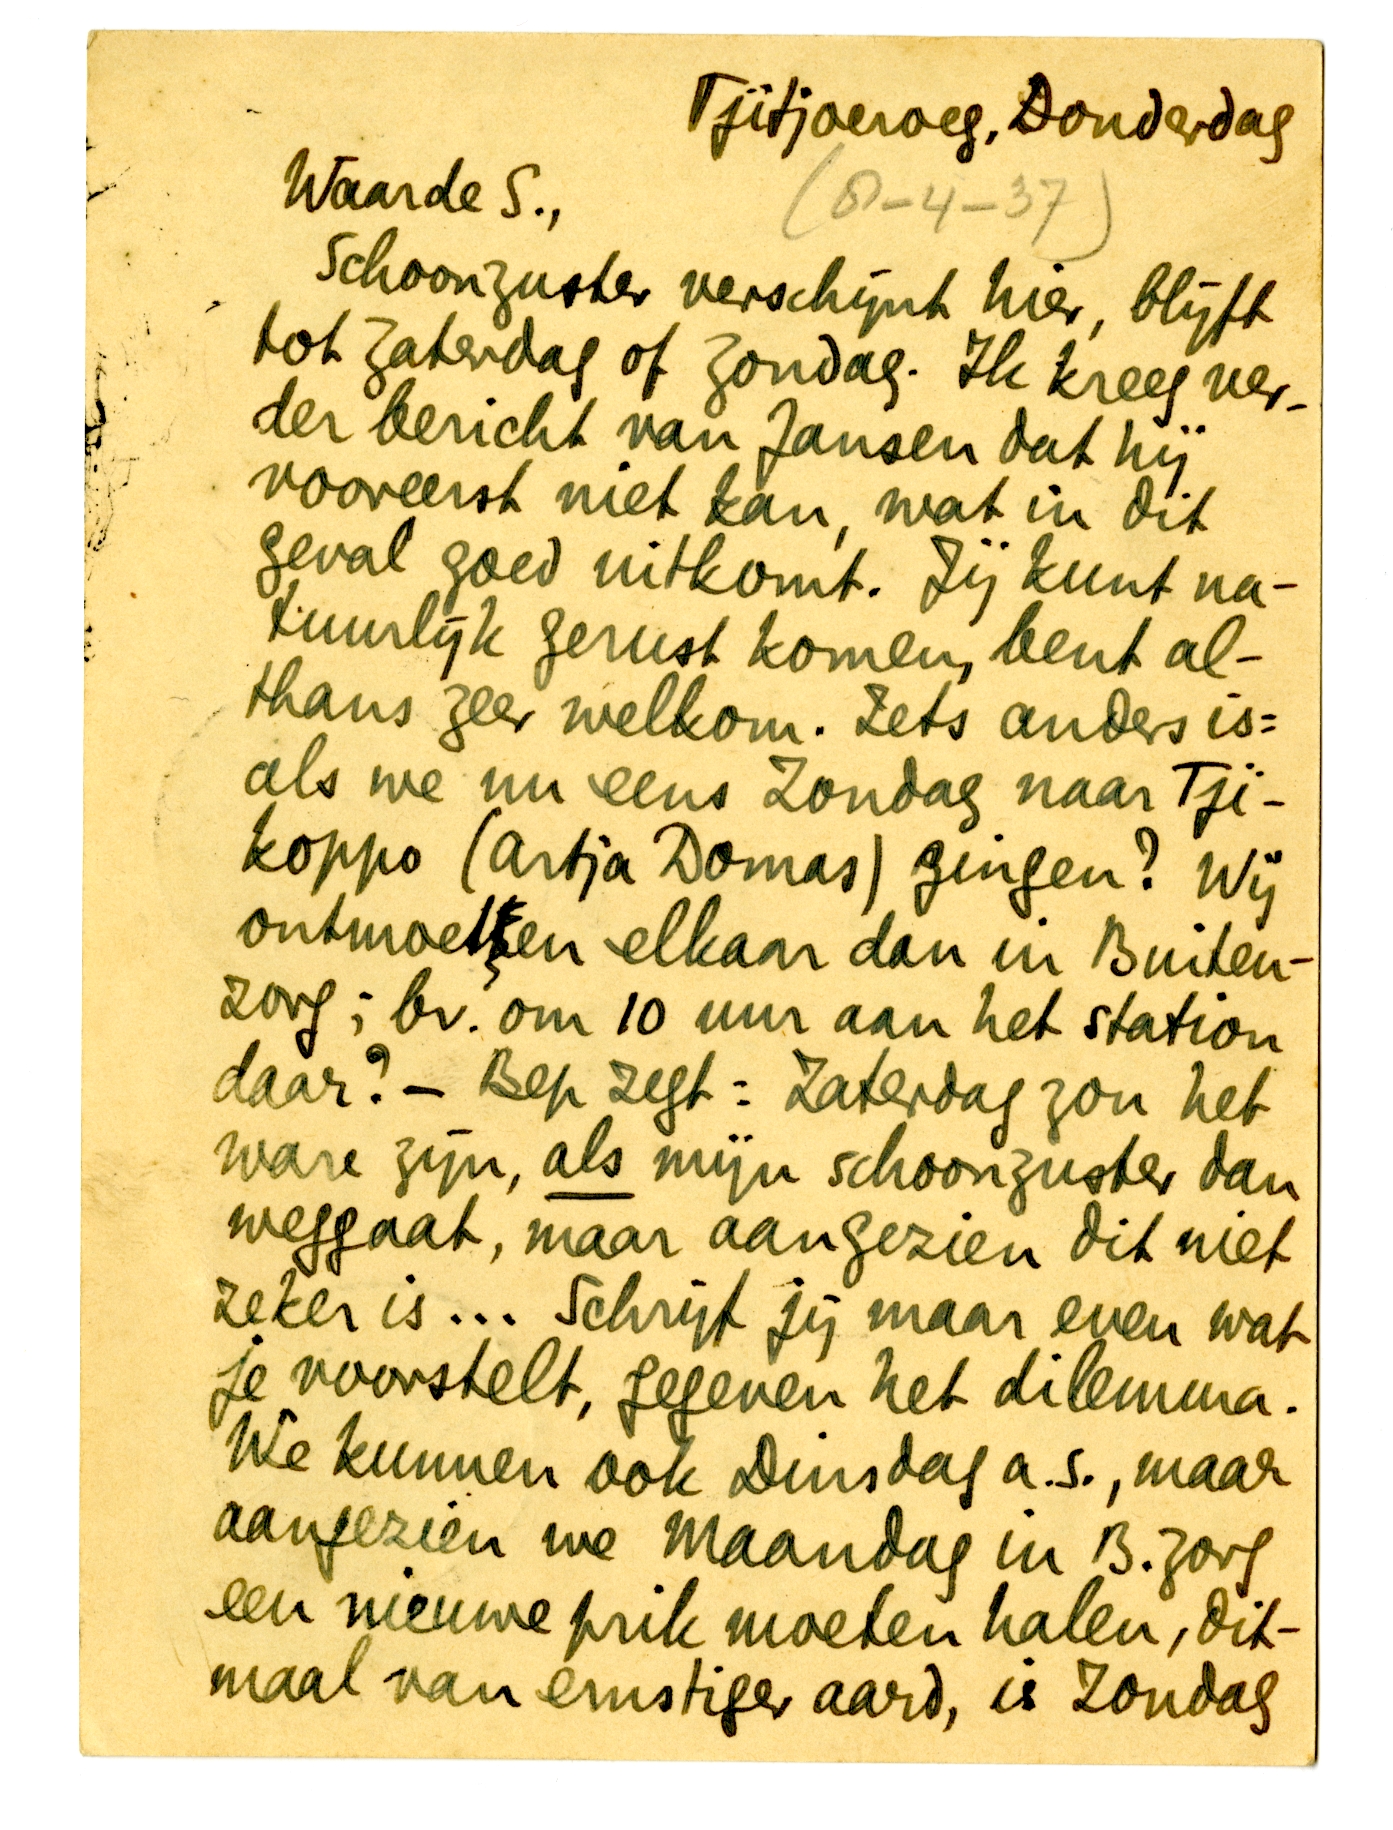 Tjitjoeroeg, Donderdag
(8-4-37)
Waarde S.,
Schoonzuster verschijnt hier, blijft
tot Zaterdag of Zondag. Ik kreeg ver-
der bericht van Jansen dat hij
vooreerst niet kan, wat in dit
geval goed uitkomt. Jij kunt na-
tuurlijk gerust komen, bent al-
thans zeer welkom. Iets anders is:
als we nu eens Zondag naar Tji-
koppo (Artja Domas) gingen? Wij
ontmoetten elkaar dan in Buiten-
zorg; bv. om 10 uur aan het station
daar? – Bep zegt: Zaterdag zou het
ware zijn, als mijn schoonzuster dan
weggaat, maar aangezien dit niet
zeker is... Schrijf jij maar even wat
je voorstelt, gegeven het dilemma.
We kunnen ook Dinsdag a.s., maar
aangezien we Maandag in B.zorg
een nieuwe prik moeten halen, dit-
maal van ernstiger aard, is Zondag